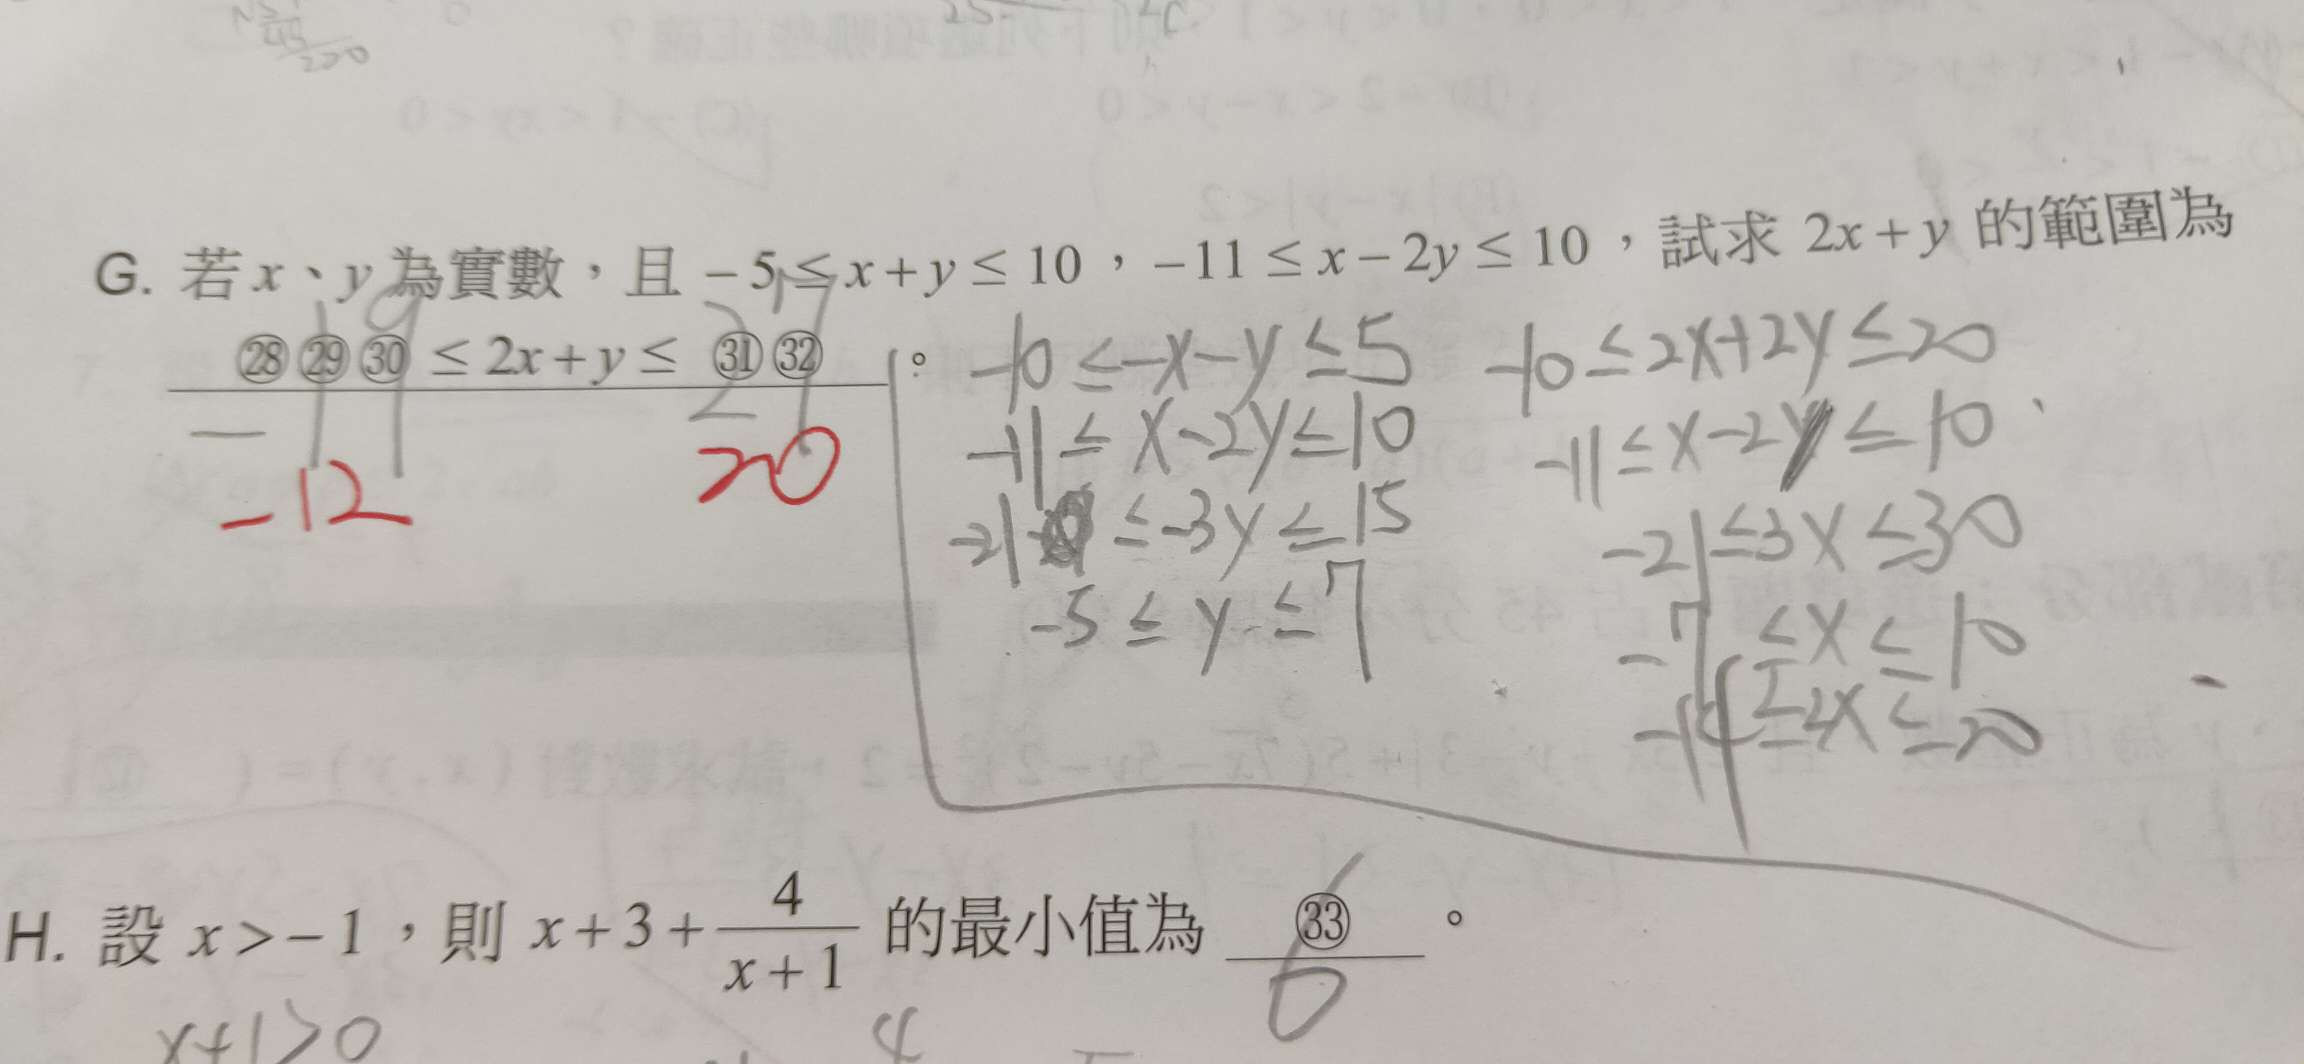 G. 若 x、y 為實數，且 -5 ≤ x+y ≤ 10，-11 ≤ x-2y ≤ 10，試求 2x+y 的範圍為
㉘㉙㉚ ≤ 2x+y ≤ ㉛㉜ 。
-19
27
-12
20
-10 ≤ -x-y ≤ 5
-11 ≤ x-2y ≤ 10
-21 ≤ -3y ≤ 15
-5 ≤ y ≤ 7
-10 ≤ 2x+2y ≤ 20
-11 ≤ x-2y ≤ 10
-21 ≤ 3x ≤ 30
-7 ≤ x ≤ 10
-14 ≤ 2x ≤ 20
H. 設 x>-1，則 x+3+4/(x+1) 的最小值為 ㉝ 。
6
x+1>0
4